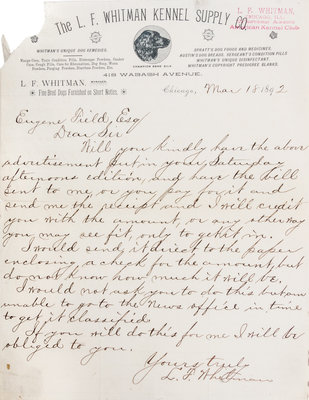 The L. F. WHITMAN KENNEL SUPPLY CO
L. F. WHITMAN,
CHICAGO, ILL.
American Kennel Club
WHITMAN'S UNIQUE DOG REMEDIES.
SPRATT'S DOG FOODS AND MEDICINES,
AUSTIN'S DOG BREADS, SERGEANT'S CONDITION PILLS
WHITMAN'S UNIQUE DISINFECTANT,
WHITMAN'S COPYRIGHT PEDIGREE BLANKS.
L F. WHITMAN, MANAGER
Fine Bred Dogs Furnished on Short Notice.
CHAMPION KING OLLIE
418 WABASH AVENUE.
Chicago, Mar 18 1892
Eugene Field, Esq
Dear Sir
Will you kindly have the above
advertisement put in your Saturday
afternoons edition, and have the bill
sent to me, or you pay for it and
send me the receipt and I will credit
you with the amount, or any other way
you may see fit, only to get it in.
I would send it direct to the paper
enclosing a check for the amount, but
do not know how much it will be.
I would not ask you to do this but am
unable to go to the News office in time
to get it classified.
If you will do this for me I will be
obliged to you.
Yours truly
L. F. Whitman